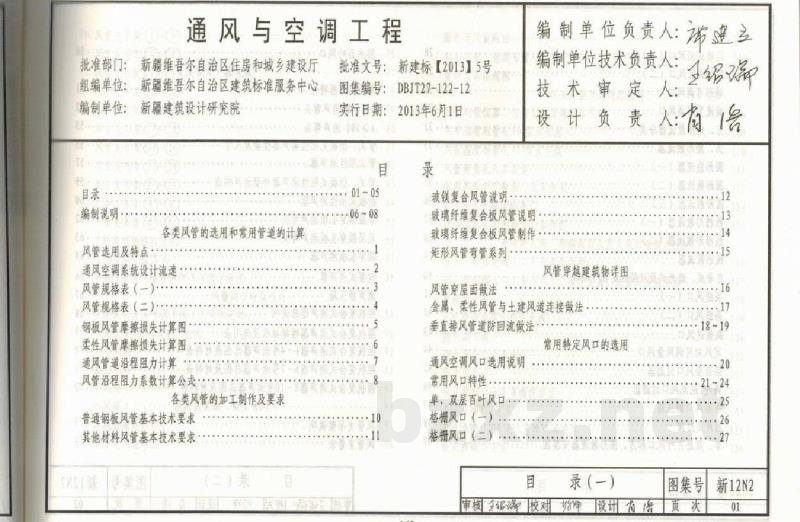 通风与空调工程
批准部门: 新疆维吾尔自治区住房和城乡建设厅 批准文号: 新建标【2013】5号
组编单位: 新疆维吾尔自治区建筑标准服务中心 图集编号: DBJT27-122-12
编制单位: 新疆建筑设计研究院 实行日期: 2013年6月1日
编制单位负责人:
编制单位技术负责人:
技术审定人:
设计负责人:
目 录
目录 01~05
编制说明 06~08
各类风管的选用和常用管道的计算
风管选用及特点 1
通风空调系统设计流速 2
风管规格表(一) 3
风管规格表(二) 4
钢板风管摩擦损失计算图 5
柔性风管摩擦损失计算图 6
通风管道沿程阻力计算 7
风管沿程阻力系数计算公式 8
各类风管的加工制作及要求
普通钢板风管基本技术要求 10
其他材料风管基本技术要求 11
玻镁复合风管说明 12
玻璃纤维复合板风管说明 13
玻璃纤维复合板风管制作 14
矩形风管弯管系列 15
风管穿越建筑物详图
风管穿屋面做法 16
金属、柔性风管与土建风道连接做法 17
垂直排风管道防回流做法 18~19
常用特定风口的选用
通风空调风口选用说明 20
常用风口特性 21~24
单,双层百叶风口 25
格栅风口(一) 26
格栅风口(二) 27
目 录(一) 图集号 新12N2
审核 校对 设计 页 次 01